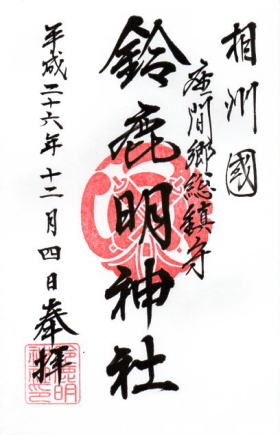 相州國
座間郷総鎮守
鈴鹿明神社
平成二十六年十二月四日奉拝
鈴鹿明神社之印